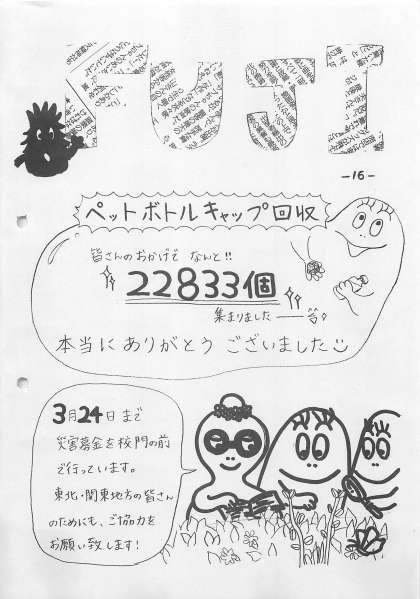 YUJI
-16-
ペットボトルキャップ回収
皆さんのおかげで なんと!!
22833個
集まりました
本当に ありがとう ございました
3月24日まで
災害募金を校門の前
で行っています。
東北・関東地方の皆さん
のためにも、ご協力を
お願い致します!